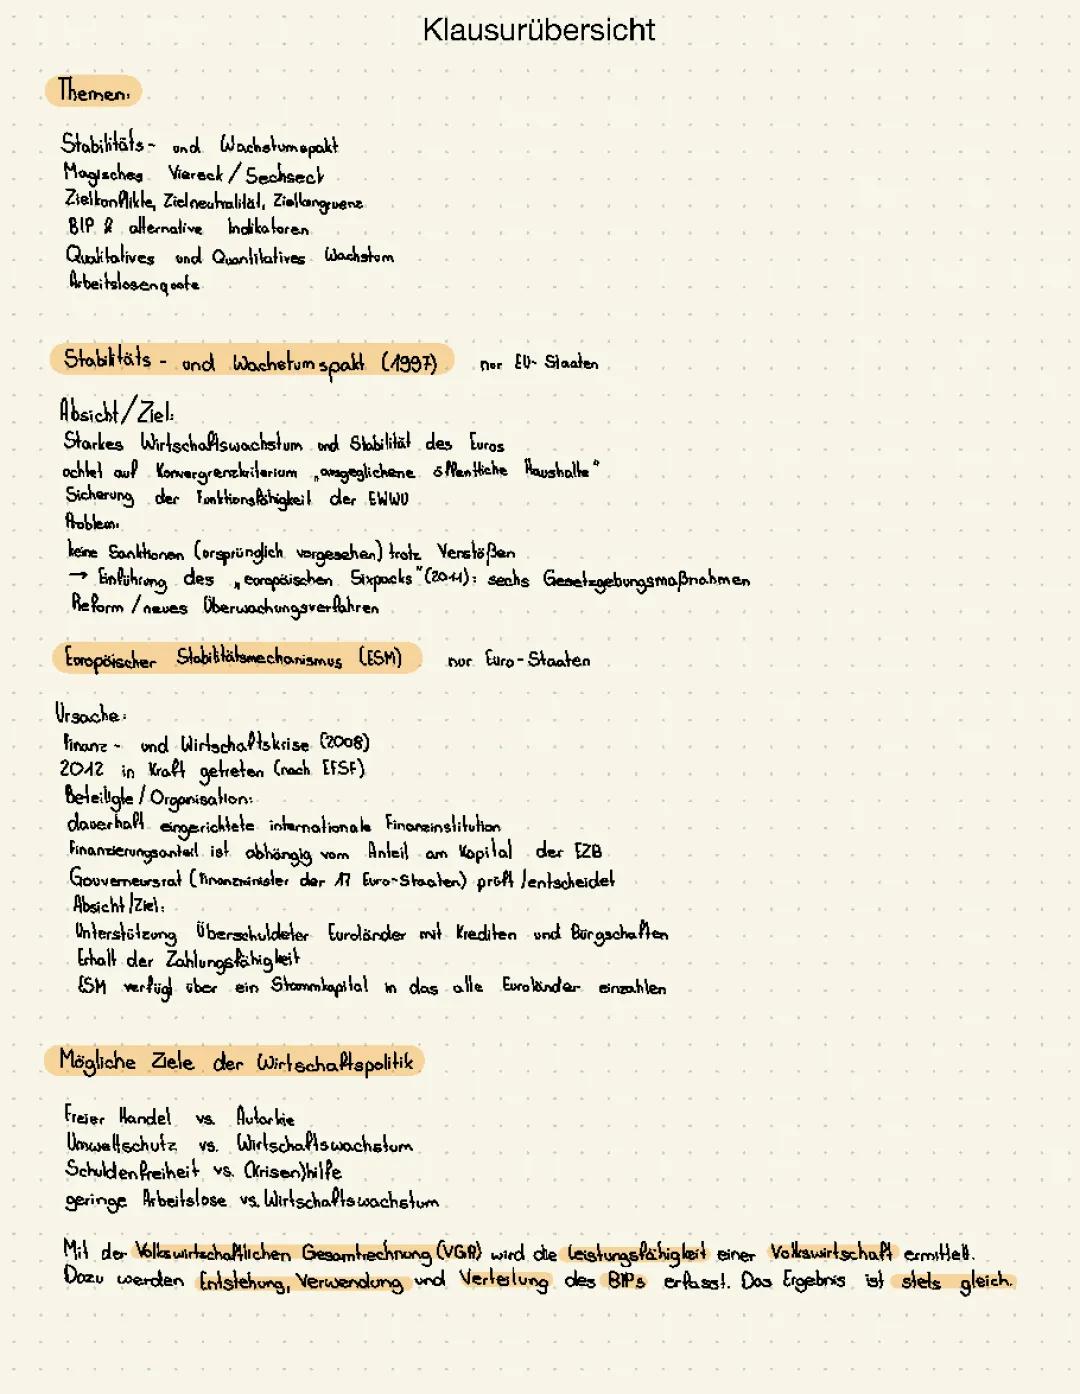 Klausurübersicht
Themen:
Stabilitäts- und Wachstumspakt
Magisches Viereck / Sechseck
Zielkonflikte, Zielneutralität, Zielkongruenz
BIP & alternative Indikatoren
Qualitatives und Quantitatives Wachstum
Arbeitslosenquote
Stabilitäts- und Wachstumspakt (1997) nur EU-Staaten
Absicht/Ziel:
Starkes Wirtschaftswachstum und Stabilität des Euros
achtet auf Konvergrenzkriterium „ausgeglichene öffentliche Haushalte"
Sicherung der Funktionsfähigkeit der EWWU
Problem:
keine Sanktionen (ursprünglich vorgesehen) trotz Verstößen
→ Einführung des „europäischen Sixpacks" (2011): sechs Gesetzgebungsmaßnahmen
Reform / neues Überwachungsverfahren
Europäischer Stabilitätsmechanismus (ESM) nur Euro-Staaten
Ursache:
Finanz- und Wirtschaftskrise (2008)
2012 in Kraft getreten (nach EFSF)
Beteiligte / Organisation:
dauerhaft eingerichtete internationale Finanzinstitution
Finanzierungsanteil ist abhängig vom Anteil am Kapital der EZB
Gouverneursrat (Finanzminister der 17 Euro-Staaten) prüft / entscheidet
Absicht/Ziel:
Unterstützung Überschuldeter Euroländer mit Krediten und Bürgschaften
Erhalt der Zahlungsfähigkeit
ESM verfügt über ein Stammkapital in das alle Euroländer einzahlen
Mögliche Ziele der Wirtschaftspolitik
Freier Handel vs. Autarkie
Umweltschutz vs. Wirtschaftswachstum
Schuldenfreiheit vs. (Krisen)hilfe
geringe Arbeitslose vs. Wirtschaftswachstum
Mit der Volkswirtschaftlichen Gesamtrechnung (VGR) wird die Leistungsfähigkeit einer Volkswirtschaft ermittelt.
Dazu werden Entstehung, Verwendung und Verteilung des BIPs erfasst. Das Ergebnis ist stets gleich.